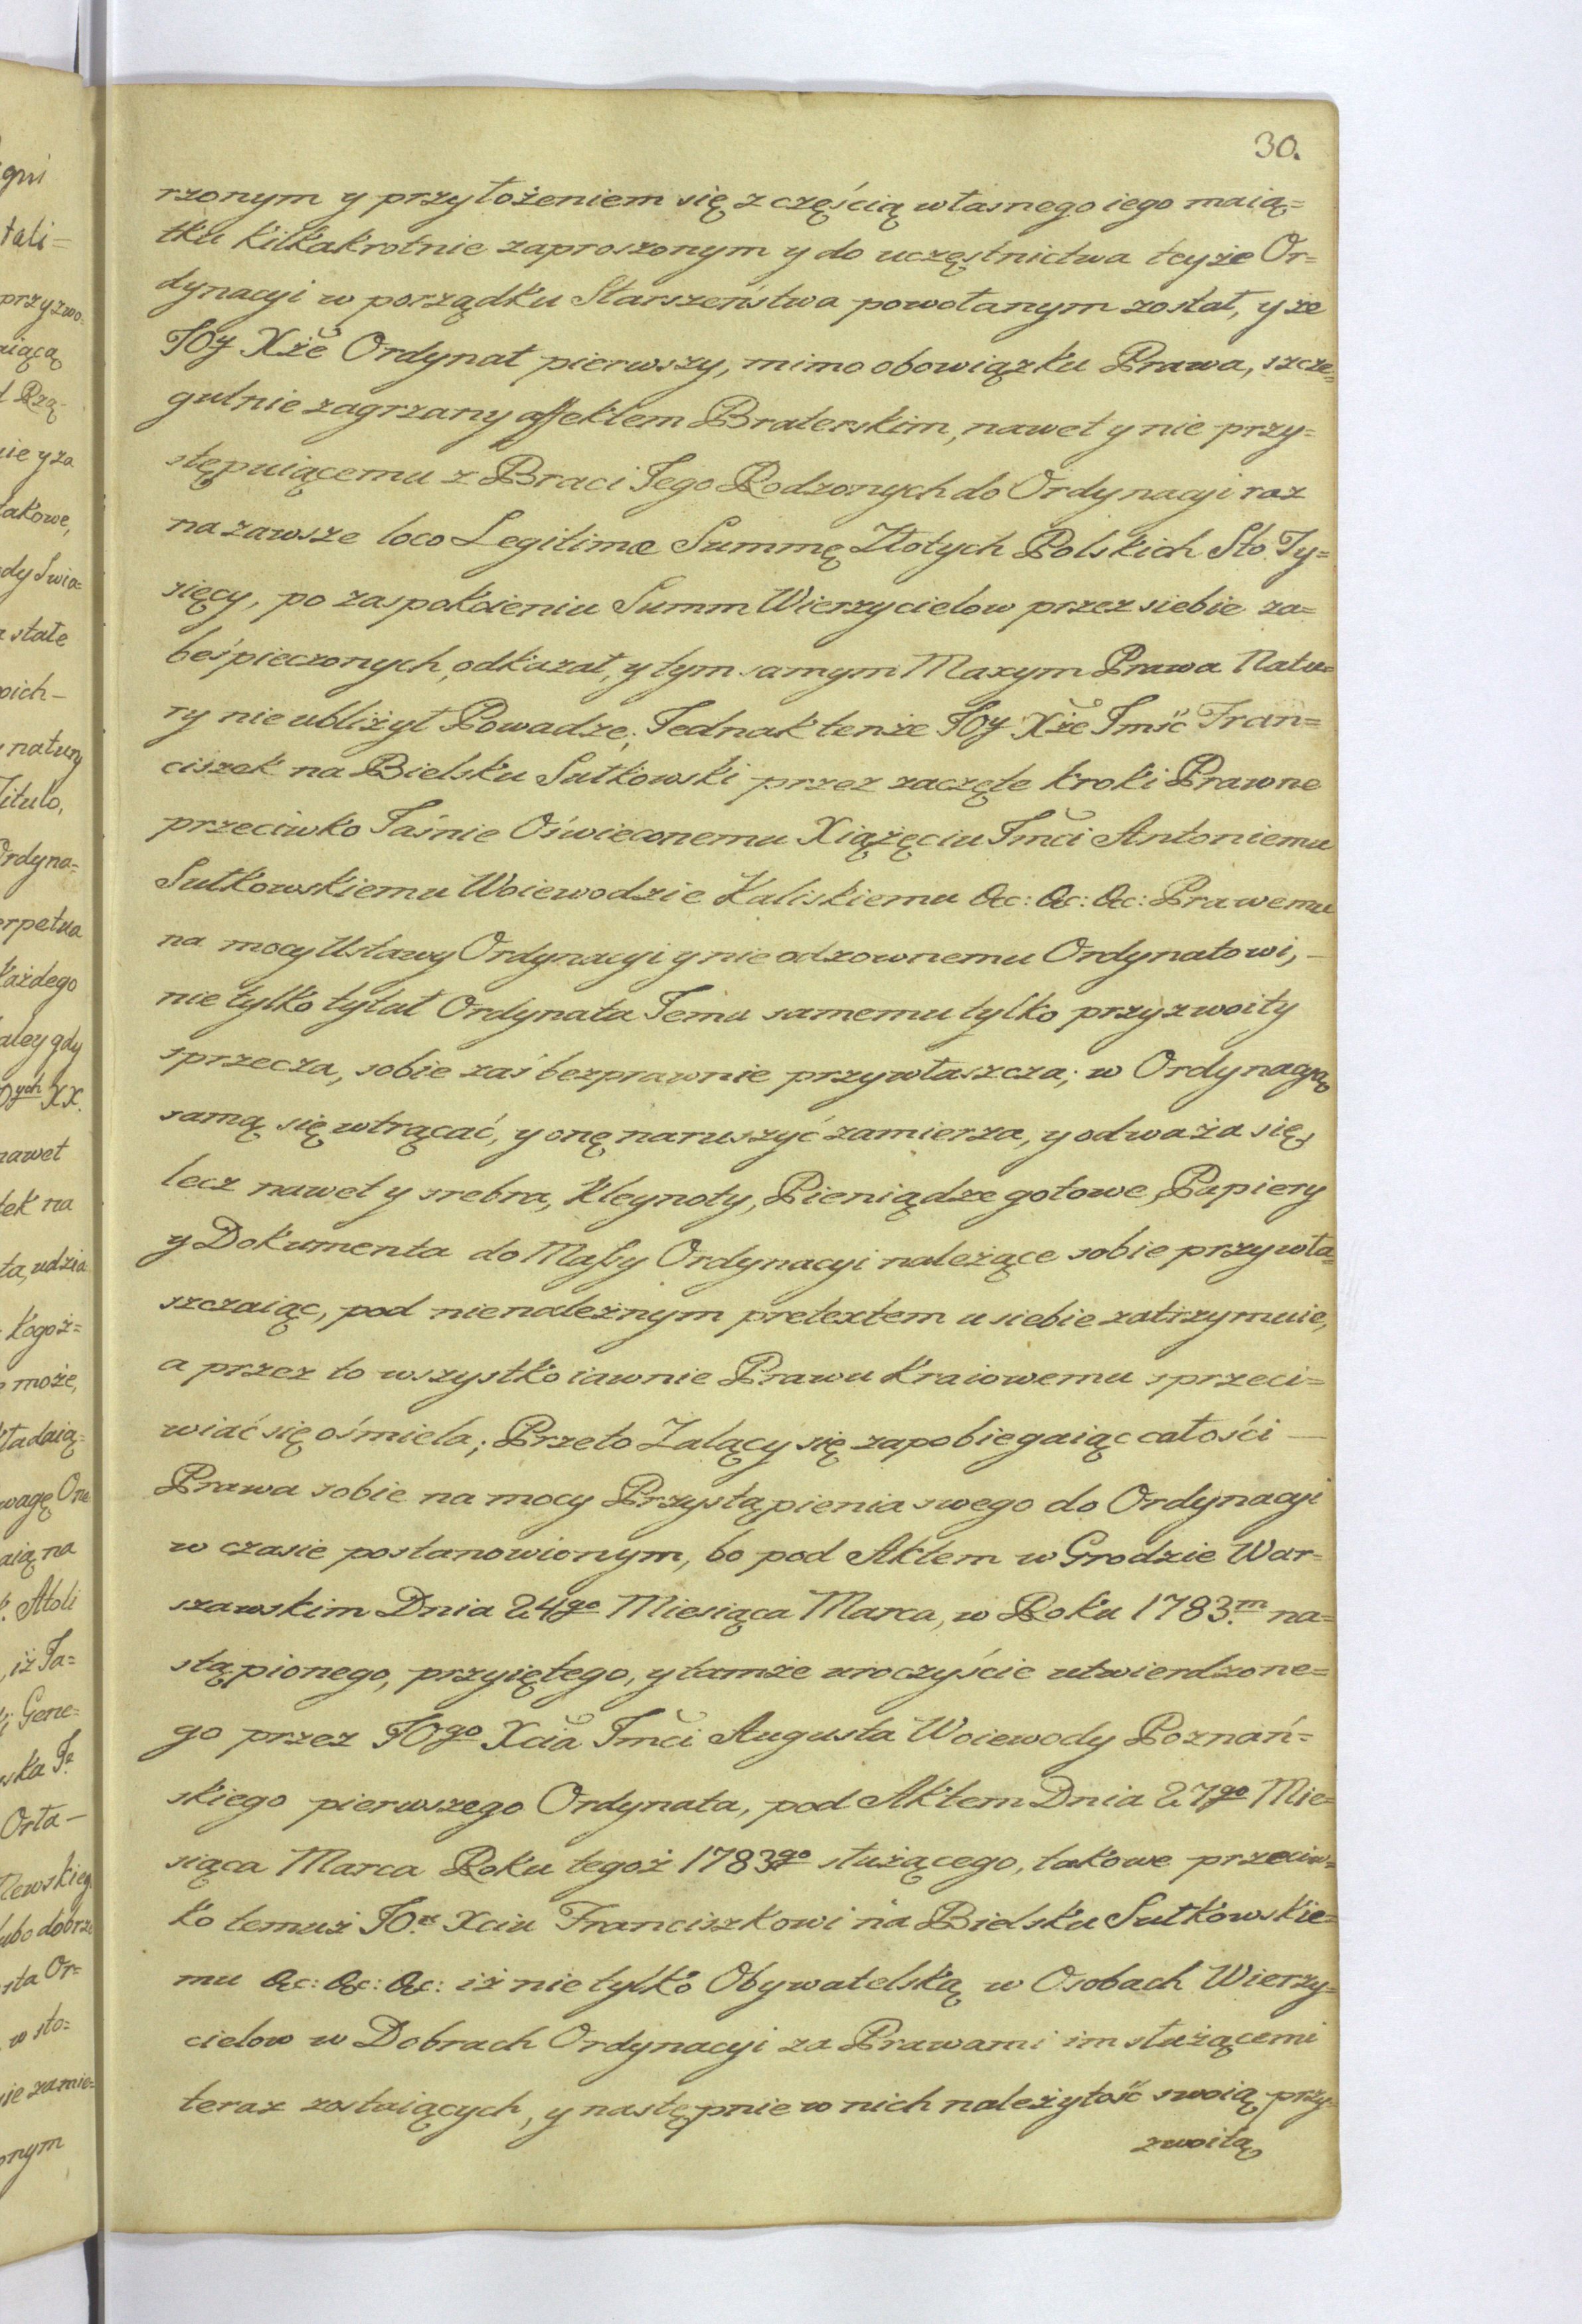 30.
rzonym y przyłożeniem się z częścią własnego iego maią=
tku kilkakrotnie zaproszonym y do uczęstnictwa teyże Or=
dynacyi w porządku Starszeństwa powołanym został, y że
JOy Xże Ordynat pierwszy, mimo obowiązku Prawa, szcze=
gulnie zagrzany affektem Braterskim, nawet y nie przy=
stępuiącemu z Braci Jego Rodzonych do Ordynacyi raz
na zawsze loco Legitimæ Summę Złotych Polskich Sto Ty=
sięcy, po zaspokoieniu Summ Wierzycielow przez siebie za=
beśpieczonych, odkazał, y tym samym Maxym Prawa Natu=
ry nie ubliżył Powadze; Jednak tenże JOy Xże Jmść Fran=
ciszek na Bielsku Sułkowski przez zaczęte kroki Prawne
przeciwko Jaśnie Oświeconemu Xiążęciu Jmci Antoniemu
Sułkowskiemu Woiewodzie Kaliskiemu &c: &c: &c: Prawemu
na mocy Ustawy Ordynacyi y nie odzownemu Ordynatowi, –
nie tylko tytuł Ordynata Jemu samemu tylko przyzwoity
sprzecza, sobie zaś bezprawnie przywłaszcza; w Ordynacyą
samą się wtrącać, y onę naruszyć zamierza, y odważa się,
lecz nawet y srebra, Kleynoty, Pieniądze gotowe, Papiery
y Dokumenta do Massy Ordynacyi należące sobie przywła=
szczaiąc, pod nienależnym pretextem u siebie zatrzymuie,
a przez to wszystko iawnie Prawu Kraiowemu sprzeci=
wiać się ośmiela; Przeto Żalący się zapobiegaiąc całości —
Prawa sobie na mocy Przystąpienia swego do Ordynacyi
w czasie postanowionym, bo pod Aktem w Grodzie War=
szawskim Dnia 24go Miesiąca Marca, w Roku 1783.m na=
stąpionego, przyiętego, y tamże uroczyście utwierdzone=
go przez JOgo Xcia Jmci Augusta Woiewody Poznań=
skiego pierwszego Ordynata, pod Aktem Dnia 27go Mie=
siąca Marca Roku tegoż 1783go służącego, takowe przeciw=
ko temuż JO. Xciu Franciszkowi na Bielsku Sułkowskie=
mu &c: &c: &c: iż nie tylko Obywatelską w Osobach Wierzy=
cielow w Dobrach Ordynacyi za Prawami im służącemi
teraz zostaiących, y następnie w nich należytość swoią przy=
zwoitą